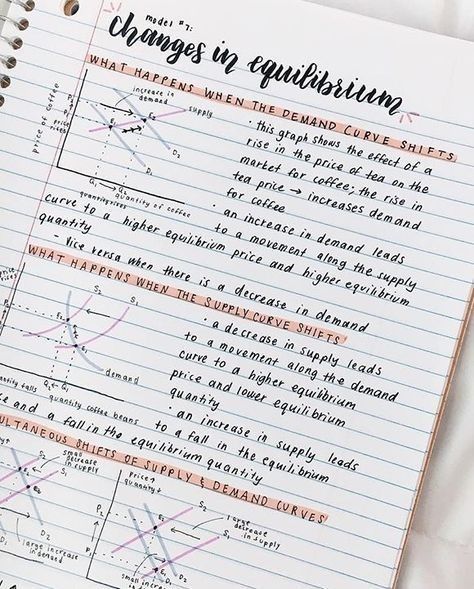 model #7:
changes in equilibrium
WHAT HAPPENS WHEN THE DEMAND CURVE SHIFTS
price of coffee
price rises
P₂
P₁
increase in demand
supply
E₂
E₁
D₂
D₁
Q₁ → Q₂
quantity rises
quantity of coffee
• this graph shows the effect of a
rise in the price of tea on the
market for coffee; the rise in
tea price → increases demand
for coffee
• an increase in demand leads
to a movement along the supply
curve to a higher equilibrium price and higher equilibrium
quantity
• vice versa when there is a decrease in demand
WHAT HAPPENS WHEN THE SUPPLY CURVE SHIFTS
S₂
S₁
E₂
E₁
demand
Q₂ ← Q₁
quantity falls
quantity coffee beans
• a decrease in supply leads
to a movement along the demand
curve to a higher equilibrium
price and lower equilibrium
quantity
• an increase in supply leads
to a fall in the equilibrium
and a fall in the equilibrium quantity
SHIFTS OF SUPPLY & DEMAND CURVES
small decrease in supply
S₂
S₁
E₂
large increase in demand
price ↑
quantity ↓
P₂
P₁
S₂
S₁
large decrease in supply
E₂
E₁
D₂
D₁
small